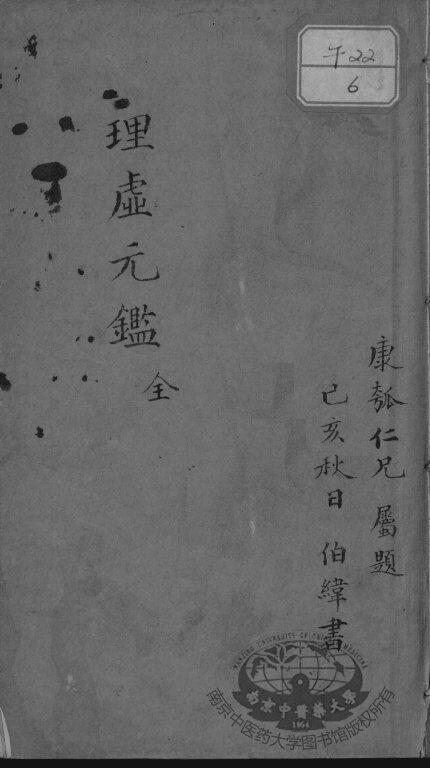 午22
6
康瓠仁兄屬題
己亥秋日 伯緯書
理虛元鑑 全
NANJING UNIVERSITY OF CHINESE MEDICINE
南京中醫藥大學
1954
南京中医药大学图书馆版权所有